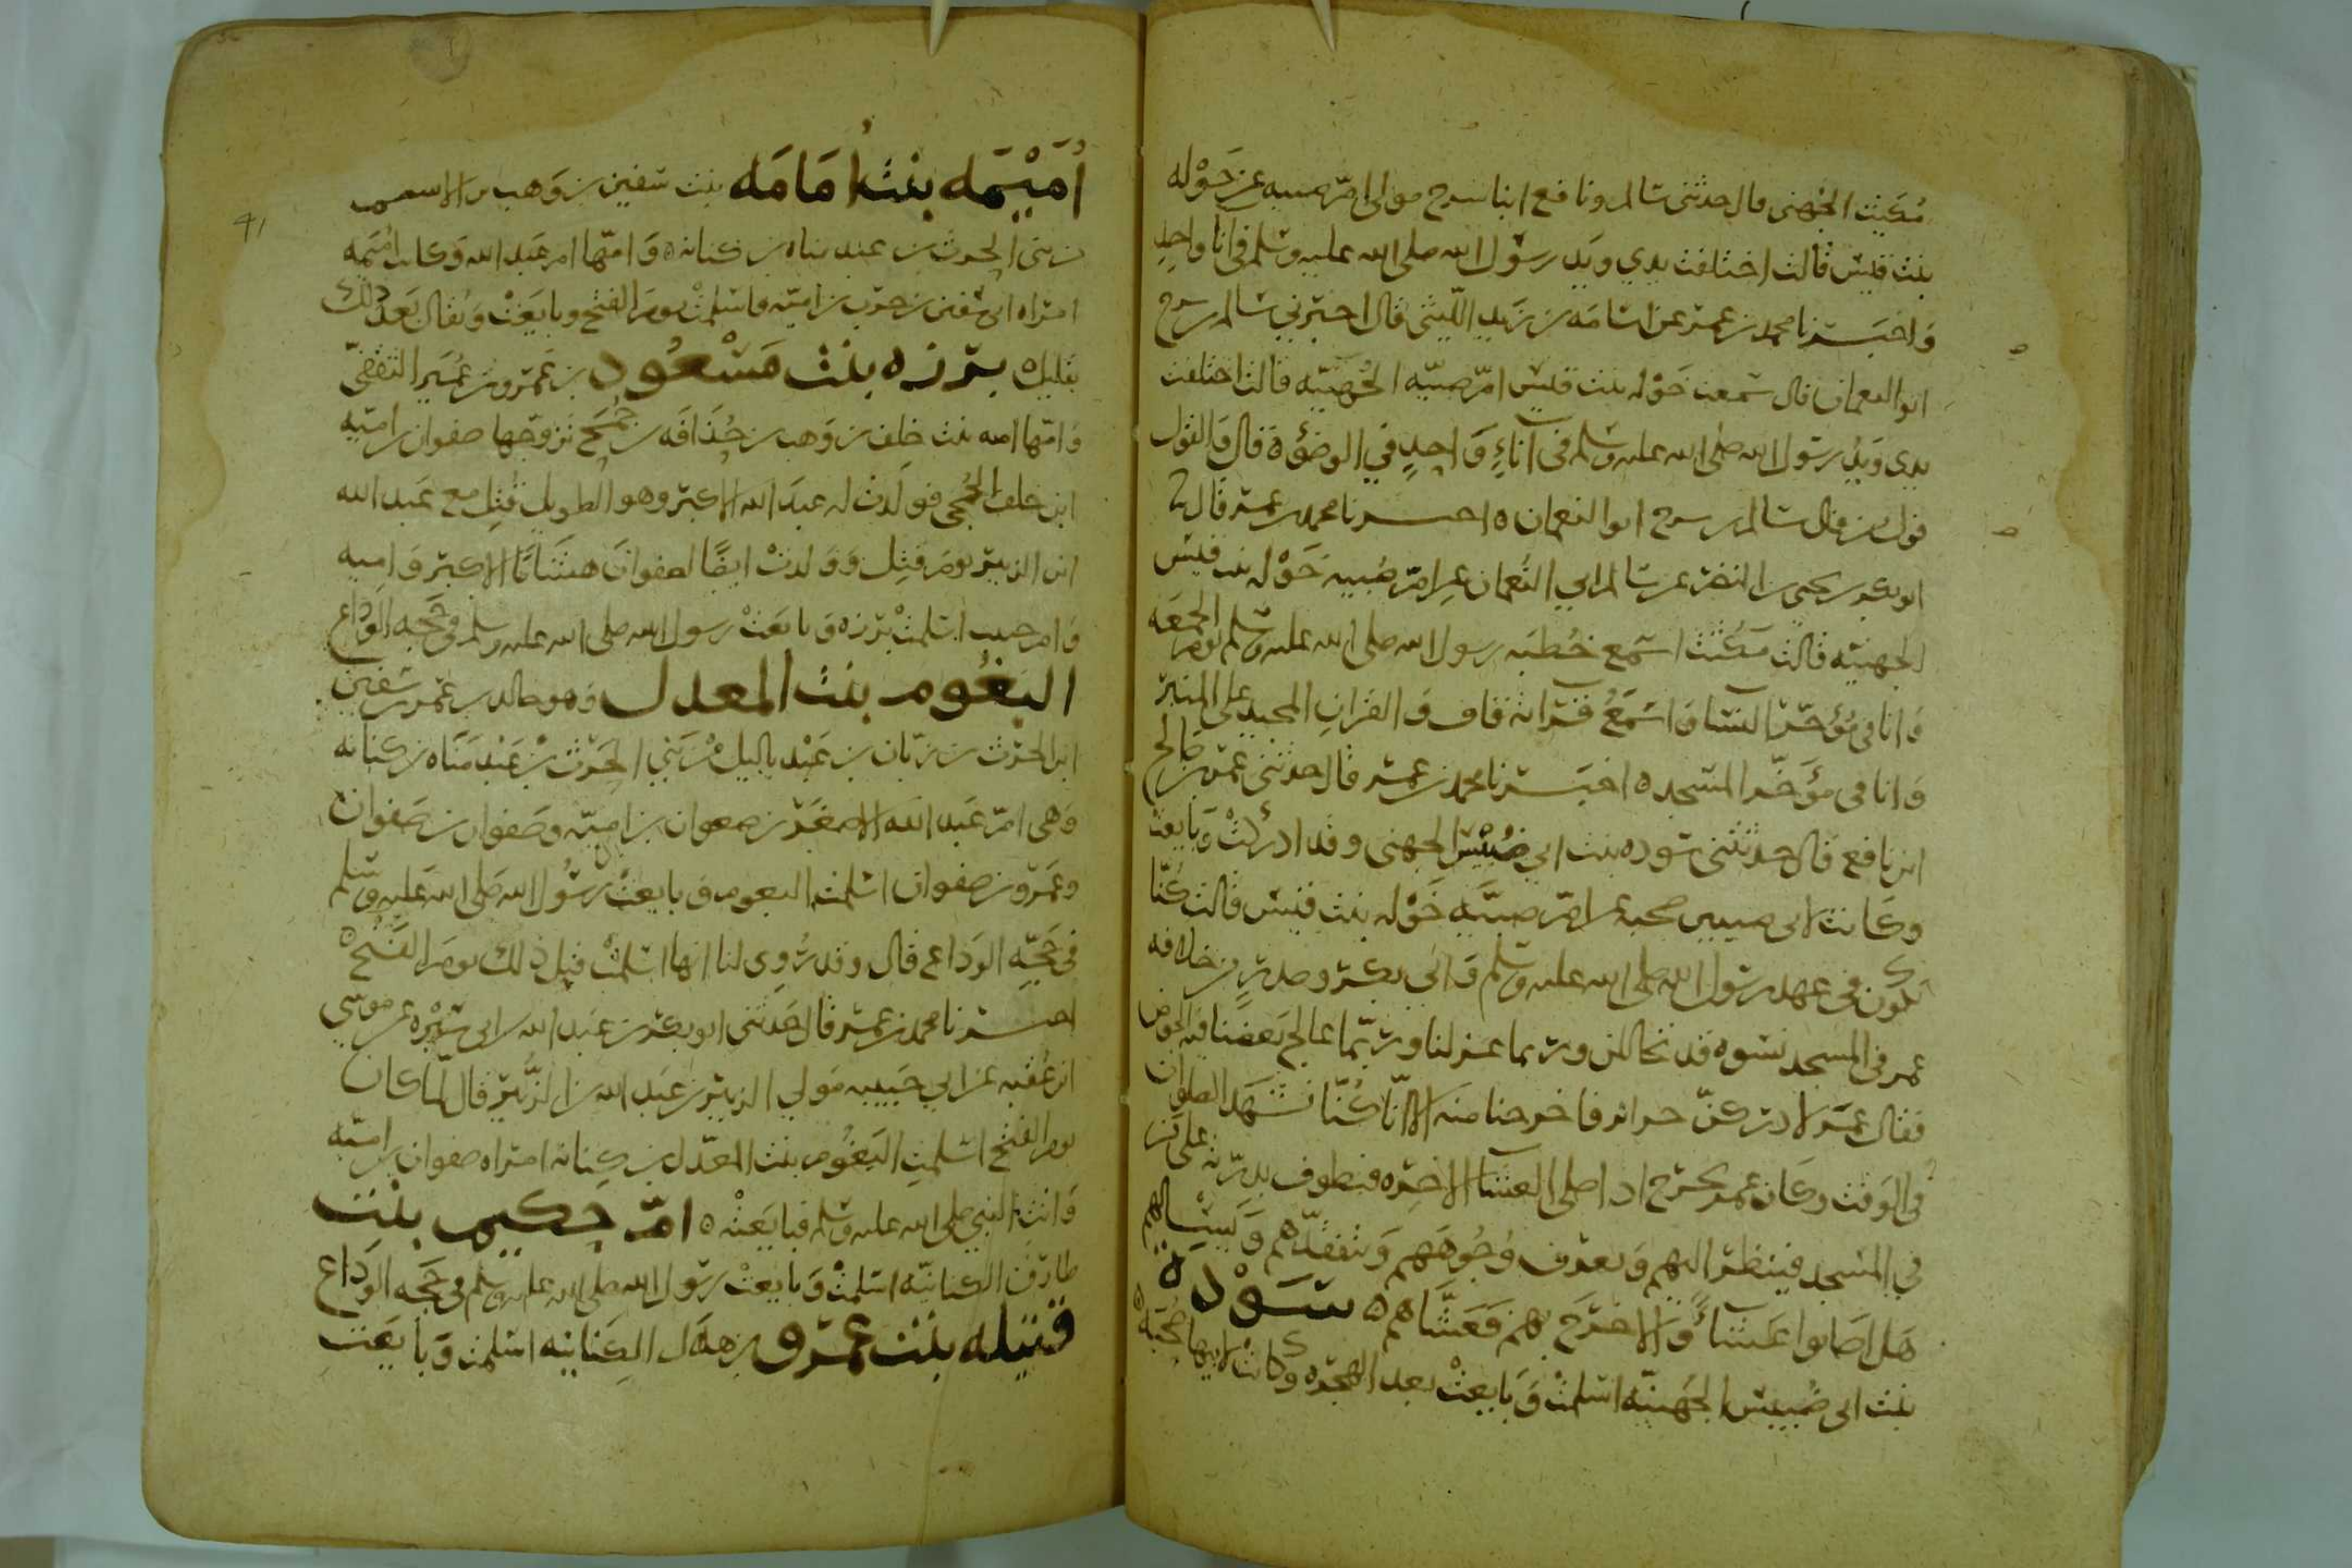 مكيث الجهني قال حدثني سالم ونافع ابنا سرج موالي ام صبيه عن خَوْله
بنت قيس قالت اختلفت يدي ويَد رسول الله صلى الله عليه وسلم في انا واحدٍ
وَاخبَــرنا محمد بن عمر عن اسامَه بن زَيد اللّيثي قال اخبرني سالم بن سرج
ابو النعمان قال سمعت خَوْله بنت قيس امّ صبيّه الجُهَنيّه قالت اختلفت
يدي وَيدُ رسول الله صلى الله عليه وسلم في اناءٍ وَاحِدٍ في الوضوء ة قال وَالقول
قول من قال سالم بن سرج ابو النعمان ٥ اخـــبرنا محمد بن عمر قال
ابو بكر بن يحيى بن النضر عن سالم ابي النُعمان عن امّ صُبيه خَوْله بنت قيس
الجهنيّه قالت مَكُنتُ اسمع خُطبَه رسول الله صلى الله عليه وسلم يوم الجمعَه
وَانا في مُؤخّر النسا وَاسمَعُ قراته قاف وَالقرانِ المجيد على المنبر
وَانا في مؤَخّر المسجد ٥ اخبَــرنا محمد بن عمر قال حدثني عمر بن صَالح
ابن نافع قال حدثتني سوده بنت ابي ضُبَيْس الجهني وقد ادرَكتْ وَبَايعت
وكَانت لابي ضبيس صحبه عن امّ صبيَّه خَوْله بنت قيس قالت كُنّا
نكون في عهد رسول الله صلى الله عليه وسلم وَابي بكر وصدرٍ من خلافه
عمر في المسجد نسوه قد تخاللن وربما غزلنا وربّما عالج بَعضنا فيه الخوص
فقال عمَر لاردّنكنّ حرائر فاخرجنا منه الا انّا كُنّا نشهَد الصلوات
في الوَقت وكان عمر يخرج اذا صلى العشَا الاخِره فيطوف بدرّته على من
في المَسجد فينظر اليهم وَيعرف وُجُوهَهم وَيتفقدّهم وَيسْالهم
هَل اصَابوا عَشاءً وَالا خرَجَ بهم فَعَشَّاهم ٥ سَــوْده
بنت ابي ضُبيس الجَهَنيّه اسلمتْ وَبَايعتْ بعد الهجره وكانت لابيها صُحبَه ٥
اُمَيْمَه بنتُ اُمَامَه بنت سفين بن وَهب بن الاسيم
من بني الحرث بن عبد مناه بن كنانه ٥ وَامّها ام عَبد الله وَكانت امُيمه
امراه ابي سفين بن حرب بن اميّه فاسلمتْ يوم الفتح وبايَعَتْ وَيُقال بَعد ذلك
بقليل ٥ بــرزه بنت مَسْعُود بن عَمرو بن عُمَير الثقفيّ
وَامّها امه بنت خلف بن وَهب بن حُذَافَه بن جُمَح تزوجها صفوان بن اميّه
ابن خلف الجُمَحي فولَدتْ له عبدَ الله الاكبر وهو الطويل قُتِل مع عَبد الله
ابن الزبير يوم قُتِل وَوَلدتْ ايضًا لصفوانَ هشامًا الاكبر وَاميه
وَام حبيب اسلمتْ برزه وَبايعَتْ رسول الله صلى الله عليه وسلم في حَجه الوَداع
البَغُوم بنت المعدل وَهو خالد بن عمرو بن سفين
ابن الحرث بن زبّان بن عَبْد ياليل مْن بَني الحَرث بْن عَبْد مَنَاه بن كنانه
وَهي امّ عَبد الله الاصغَر بن صفوان بن اميّه وصَفوان بن صَفوان
وعَمرو بن صفوان اسلمت البغوم وَبايعتْ رسُول الله صَلى الله عَليه وسلم
في حَجّه الوَداع قال وقد رُوِى لنا انها اسلمتْ قبل ذلك يومَ الفَتْح ٥
اخــبرنا محمد بن عمر قال حَدثني ابو بكر بن عَبد الله بن ابي سَبْره عن موسى
ابن عُقبه عن ابي حَبيبه مَولي الزبير بن عبَد الله بن الزُّبَير قال لمّا كان
يوم الفتح اسلمتِ البَغُوم بنت المعدّل بن كِنانه امراه صفوان بن اميّه
وَاتتِ النبي صلى الله عليه وسلم فبايَعَتْه ٥ امّ حكيم بنت
طارق الكنانيّه اسلمتْ وَبايعتْ رسول الله صلى الله عليه وسلم في حَجه الوَدَاع
قتيله بنت عمرو بن هلال الكِنانيه اسلمت وَبايَعَت